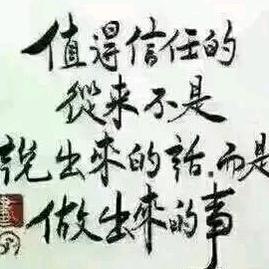 值得信任的
從来不是
說出來的話.而是
做出來的事